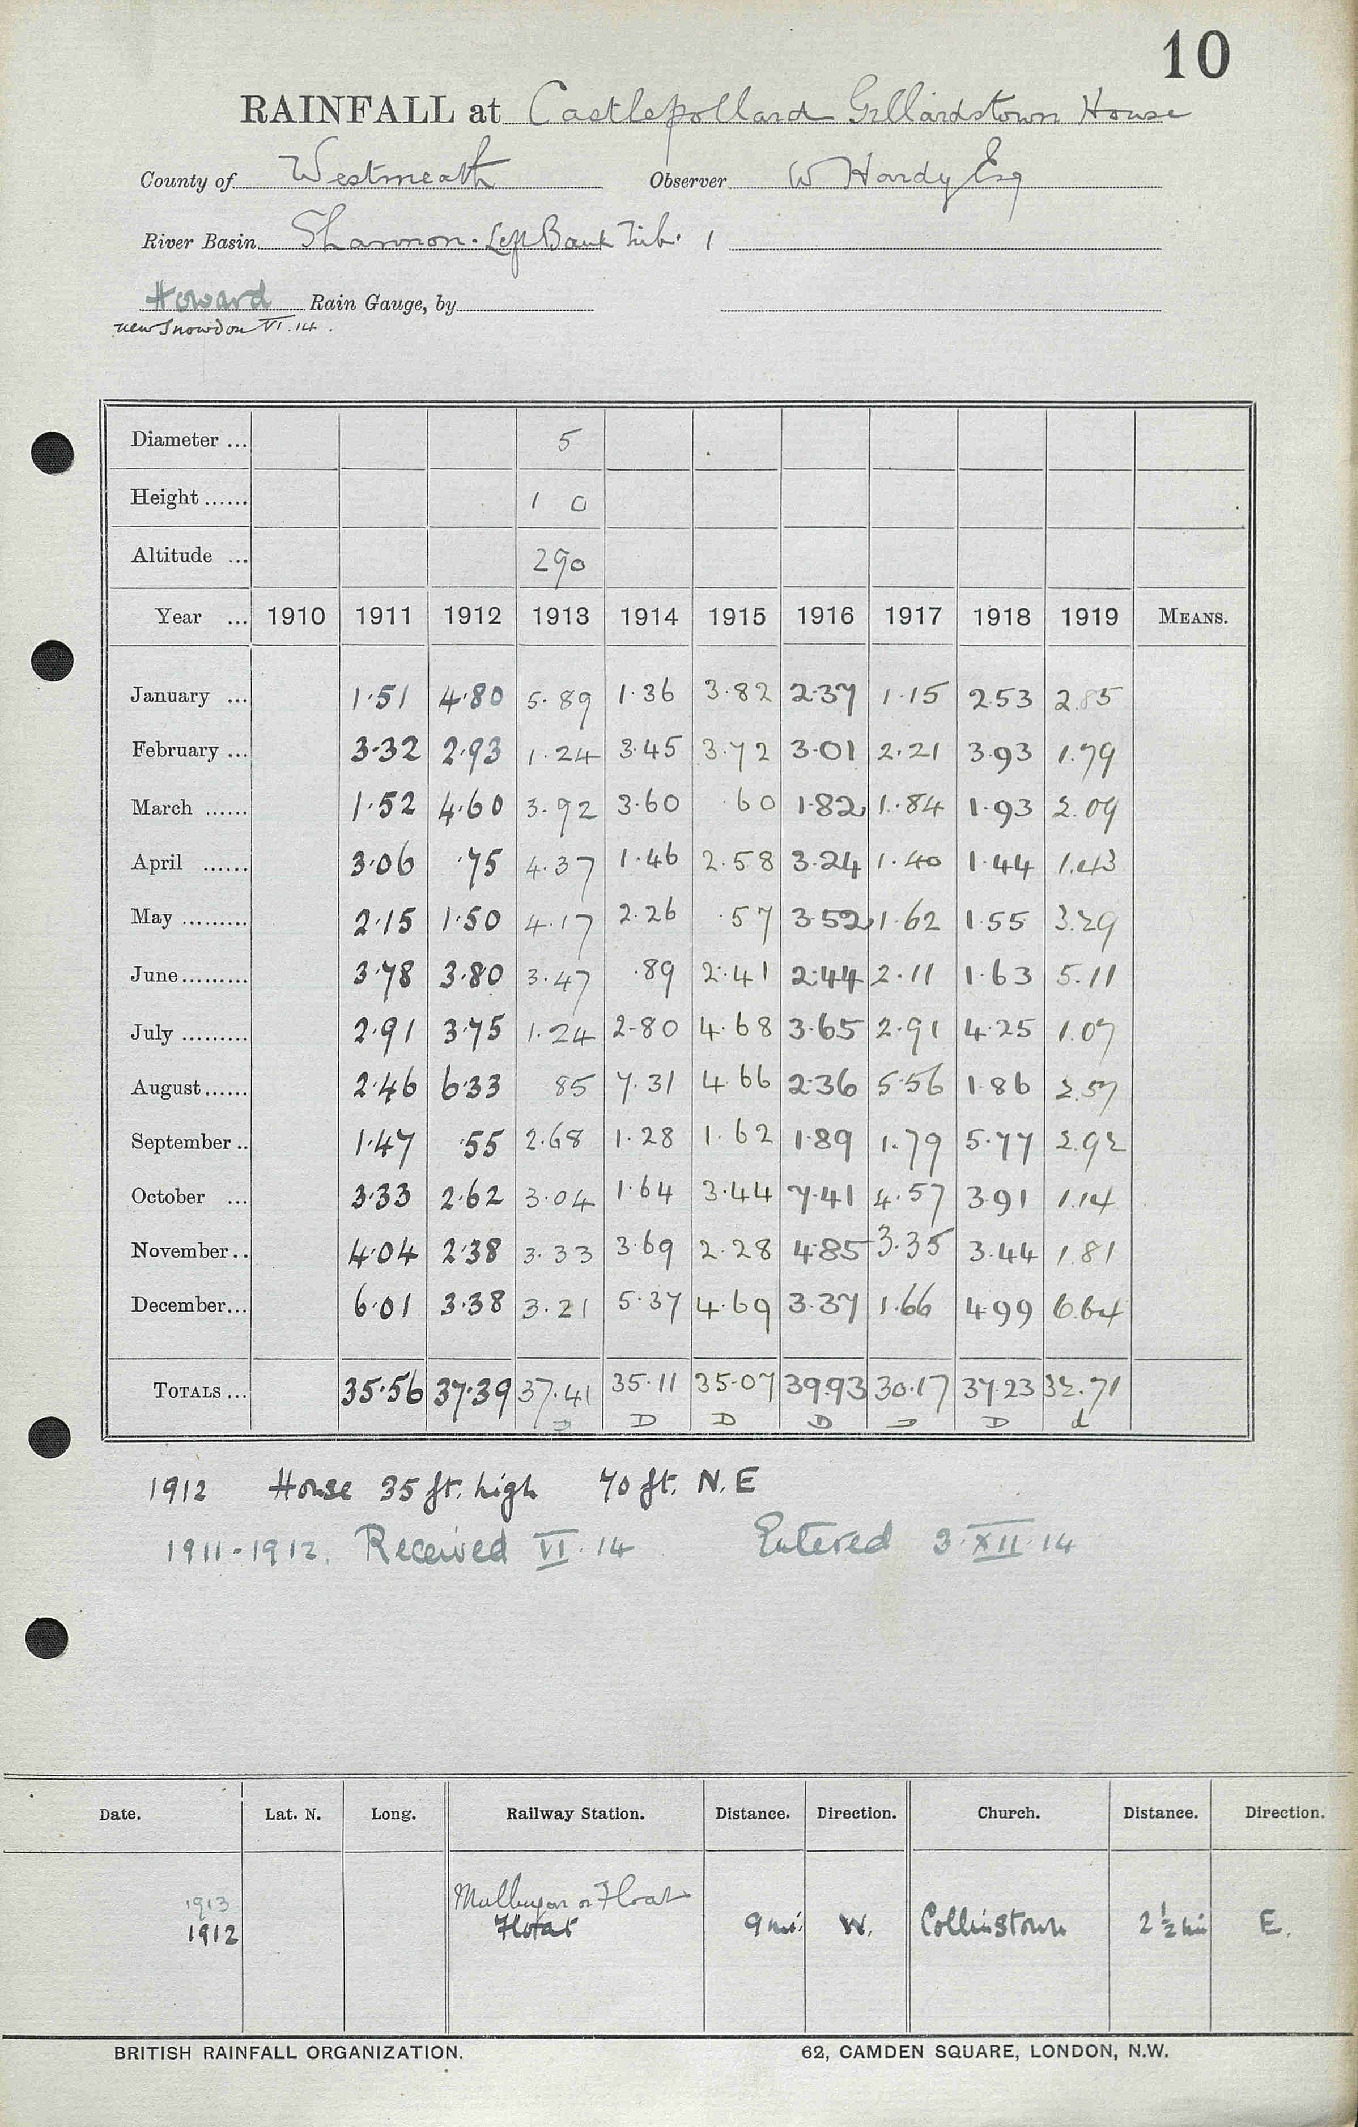 10
RAINFALL at Castlepollard Gillardstown House
County of Westmeath Observer W Hardy Esq
River Basin Shannon. Left Bank Trib. 1
Howard Rain Gauge, by
new Snowdon VI.14.
Diameter ... 5
Height ...... 1 0
Altitude ... 290
Year ... 1910 1911 1912 1913 1914 1915 1916 1917 1918 1919 MEANS.
January ... 1.51 4.80 5.89 1.36 3.82 2.37 1.15 2.53 2.85
February ... 3.32 2.93 1.24 3.45 3.72 3.01 2.21 3.93 1.79
March ...... 1.52 4.60 3.92 3.60 .60 1.82 1.84 1.93 2.09
April ...... 3.06 .75 4.37 1.46 2.58 3.24 1.40 1.44 1.43
May ......... 2.15 1.50 4.17 2.26 .57 3.52 1.62 1.55 3.29
June ......... 3.78 3.80 3.47 .89 2.41 2.44 2.11 1.63 5.11
July ......... 2.91 3.75 1.24 2.80 4.68 3.65 2.91 4.25 1.07
August ...... 2.46 6.33 85 7.31 4.66 2.36 5.56 1.86 2.57
September .. 1.47 .55 2.68 1.28 1.62 1.89 1.79 5.77 2.92
October ... 3.33 2.62 3.04 1.64 3.44 7.41 4.57 3.91 1.14
November .. 4.04 2.38 3.33 3.69 2.28 4.85 3.35 3.44 1.81
December ... 6.01 3.38 3.21 5.37 4.69 3.37 1.66 4.99 6.64
TOTALS ... 35.56 37.39 37.41 35.11 35.07 39.93 30.17 37.23 32.71
D D D D D D d
1912 House 35 ft. high 70 ft. N.E
1911-1912. Received VI.14 Entered 3.XII.14
Date. Lat. N. Long. Railway Station. Distance. Direction. Church. Distance. Direction.
1913 Mullingar or Float
1912 Float 9 mi. W. Collinstown 2 1/2 mi E.
BRITISH RAINFALL ORGANIZATION. 62, CAMDEN SQUARE, LONDON, N.W.